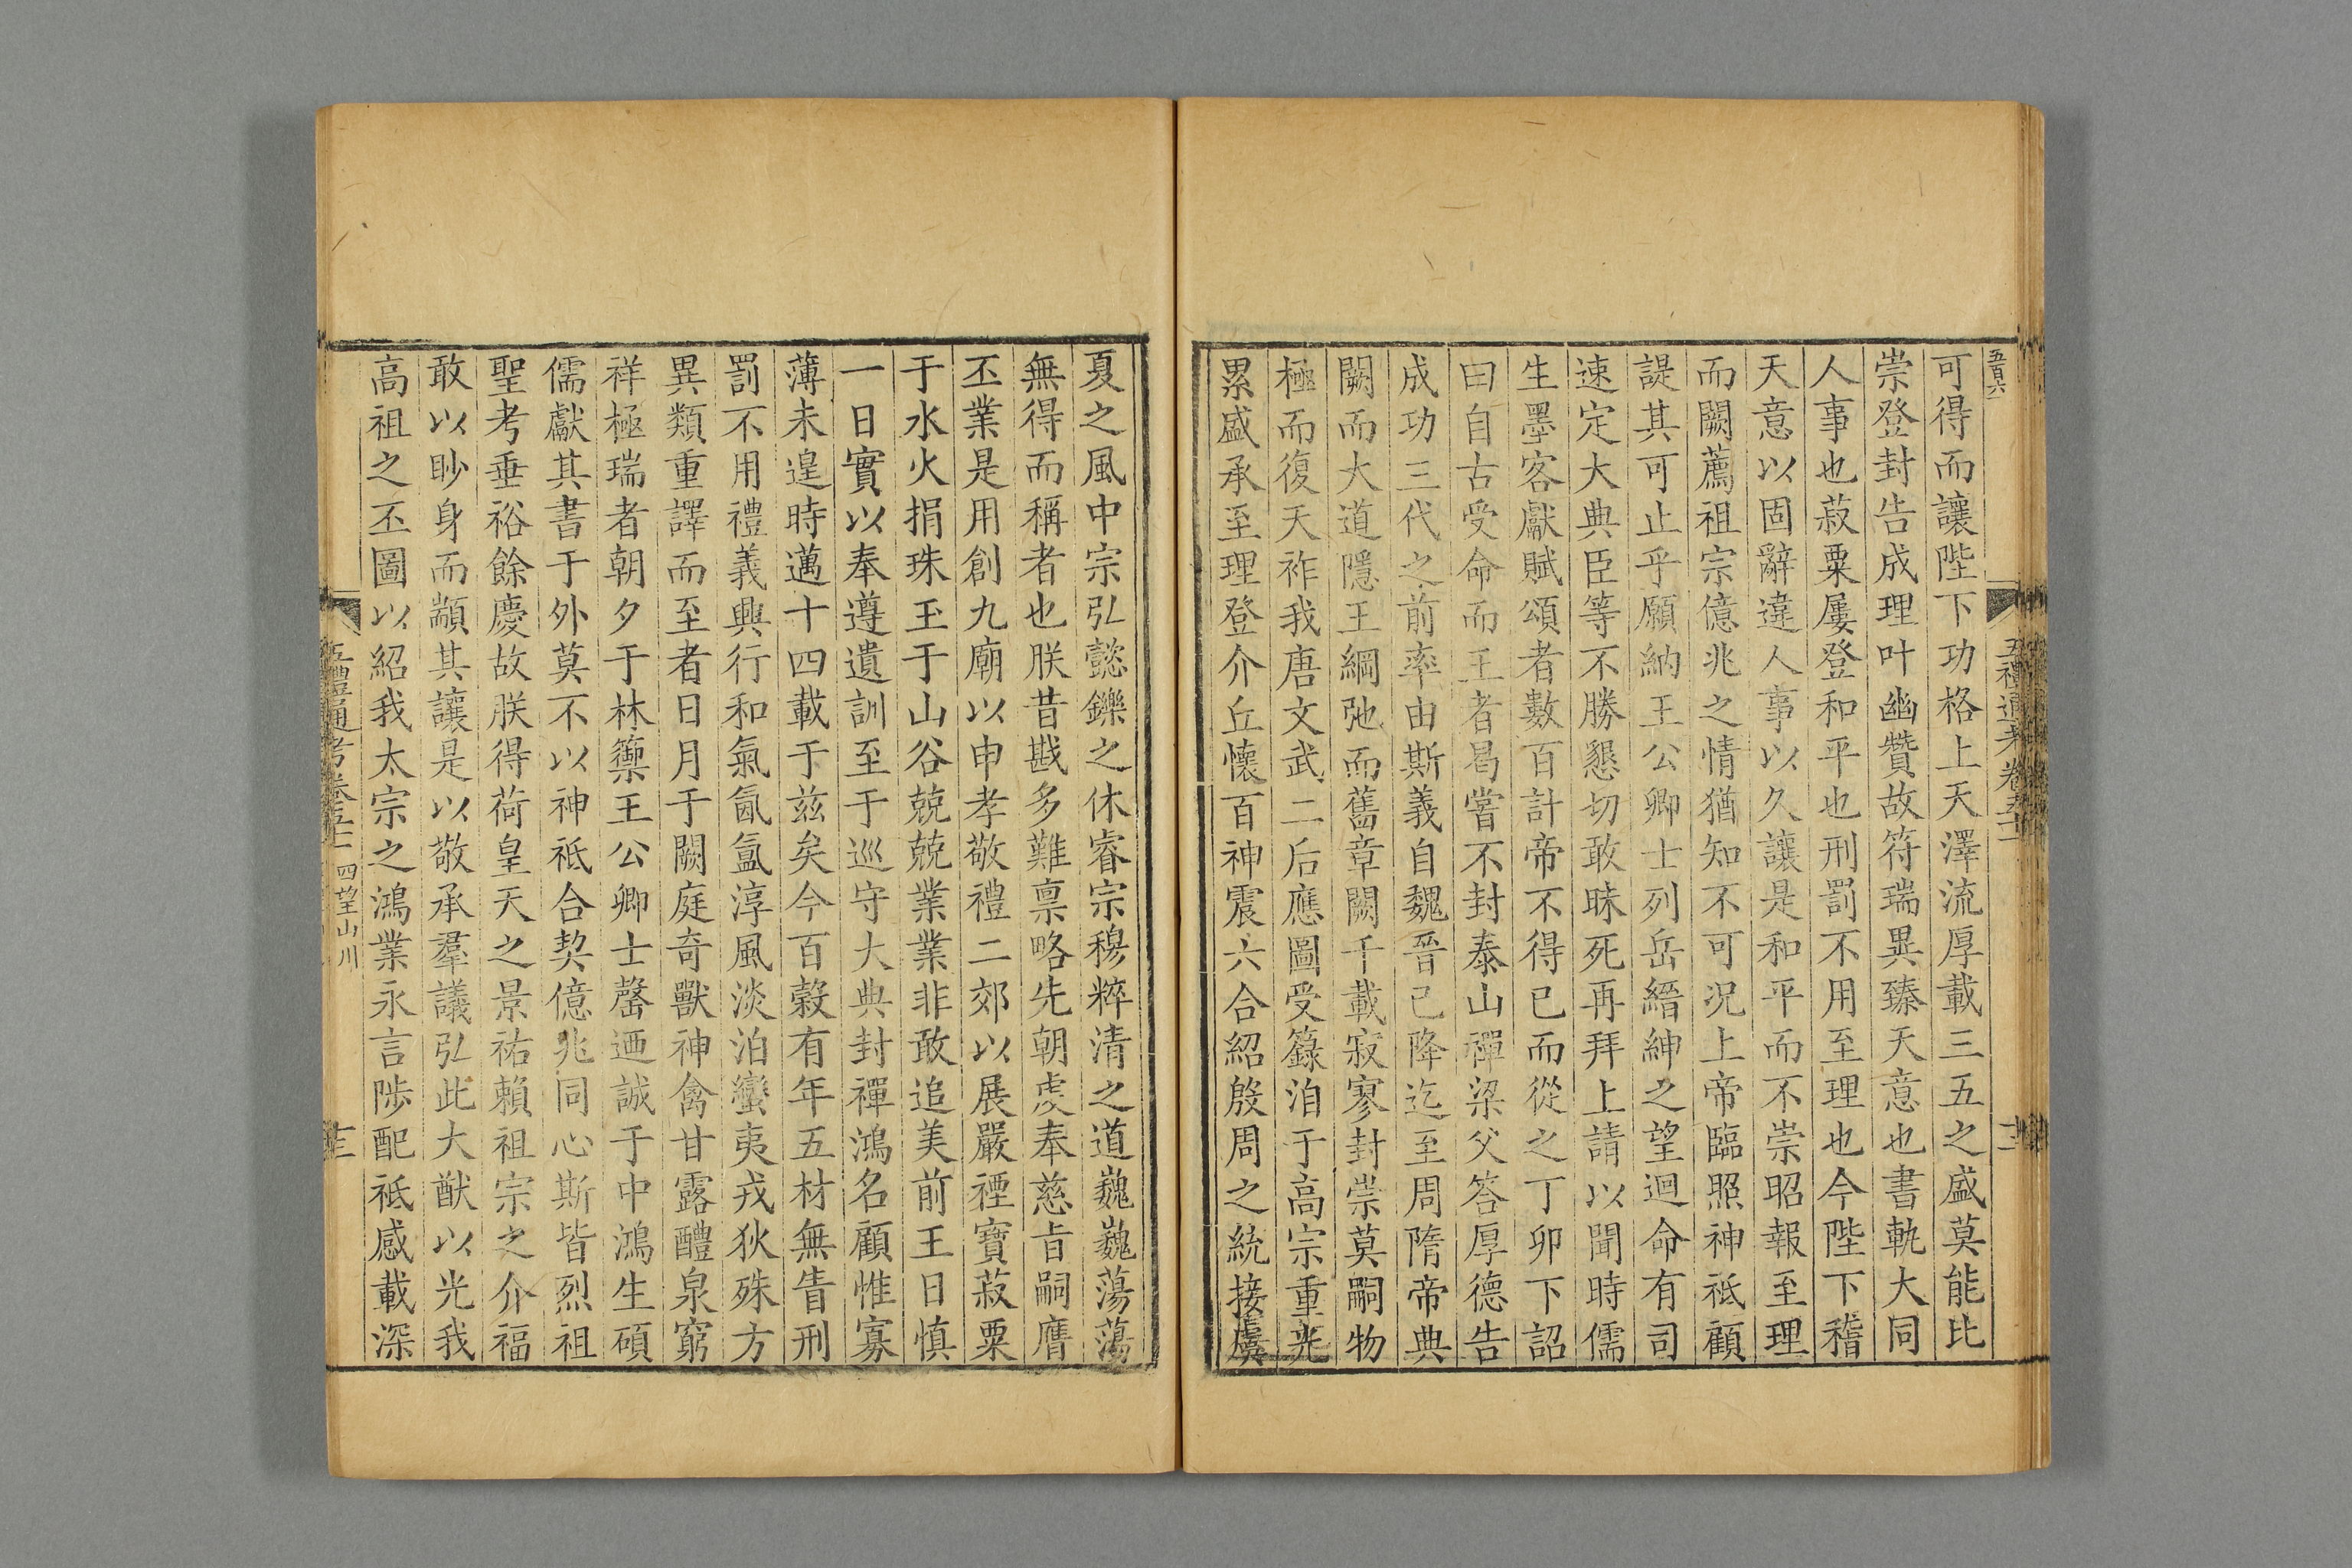 五百六
五禮通考卷五十一
十二
可得而讓陛下功格上天澤流厚載三五之盛莫能比
崇登封告成理叶幽贊故符瑞異臻天意也書軌大同
人事也菽粟屢登和平也刑罰不用至理也今陛下稽
天意以固辭違人事以久讓是和平而不崇昭報至理
而闕薦祖宗億兆之情猶知不可況上帝臨照神祗顧
諟其可止乎願納王公卿士列岳縉紳之望迴命有司
速定大典臣等不勝懇切敢昧死再拜上請以聞時儒
生墨客獻賦頌者數百計帝不得已而從之丁卯下詔
曰自古受命而王者曷嘗不封泰山禪梁父答厚德告
成功三代之前率由斯義自魏晉已降迄至周隋帝典
闕而大道隱王綱弛而舊章闕千載寂寥封崇莫嗣物
極而復天祚我唐文武二后應圖受籙洎于高宗重光
累盛承至理登介丘懷百神震六合紹殷周之統接虞
夏之風中宗弘懿鑠之休睿宗穆粹清之道巍巍蕩蕩
無得而稱者也朕昔戡多難稟略先朝虔奉慈旨嗣膺
丕業是用創九廟以申孝敬禮二郊以展嚴禋寶菽粟
于水火捐珠玉于山谷兢兢業業非敢追美前王日慎
一日實以奉遵遺訓至于巡守大典封禪鴻名顧惟寡
薄未遑時邁十四載于兹矣今百穀有年五材無眚刑
罰不用禮義興行和氣氤氳淳風淡泊蠻夷戎狄殊方
異類重譯而至者日月于闕庭奇獸神禽甘露醴泉窮
祥極瑞者朝夕于林籞王公卿士罄迺誠于中鴻生碩
儒獻其書于外莫不以神祗合契億兆同心斯皆烈祖
聖考垂裕餘慶故朕得荷皇天之景祐賴祖宗之介福
敢以眇身而顓其讓是以敬承羣議弘此大猷以光我
高祖之丕圖以紹我太宗之鴻業永言陟配祗感載深
五禮通考卷五十一 四望山川
十三